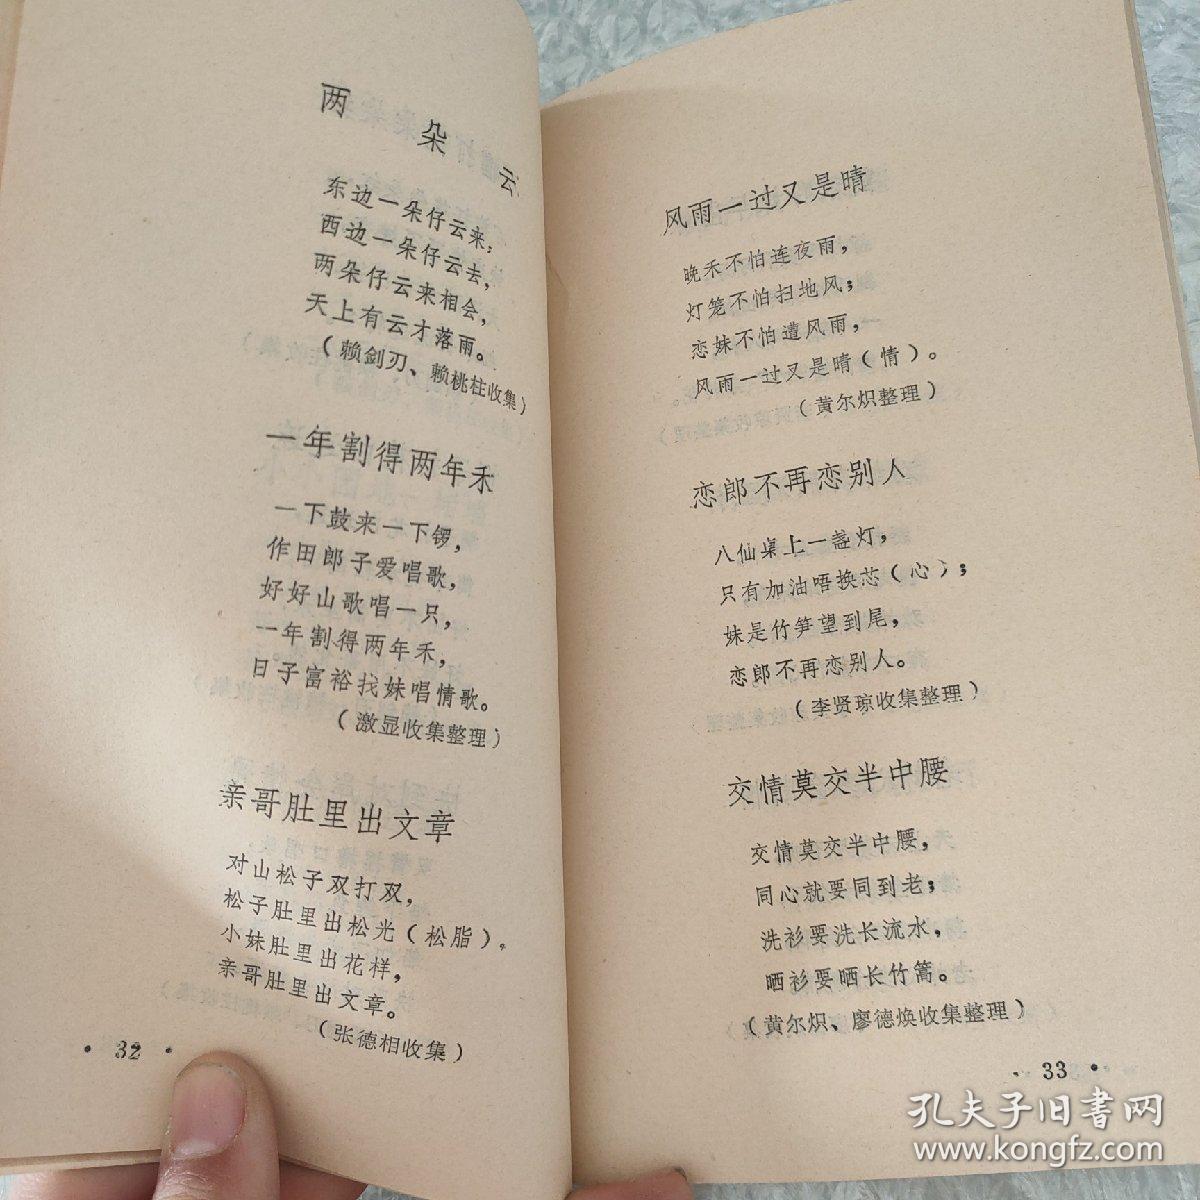 两朵云
东边一朵仔云来;
西边一朵仔云去,
两朵仔云来相会,
天上有云才落雨。
(赖剑刃、赖桃柱收集)
一年割得两年禾
一下鼓来一下锣,
作田郎子爱唱歌,
好好山歌唱一只,
一年割得两年禾,
日子富裕找妹唱情歌。
(激显收集整理)
亲哥肚里出文章
对山松子双打双,
松子肚里出松光(松脂),
小妹肚里出花样,
亲哥肚里出文章。
(张德相收集)
· 32 ·
风雨一过又是晴
晚禾不怕连夜雨,
灯笼不怕扫地风;
恋妹不怕遭风雨,
风雨一过又是晴(情)。
(黄尔炽整理)
恋郎不再恋别人
八仙桌上一盏灯,
只有加油唔换芯(心);
妹是竹笋望到尾,
恋郎不再恋别人。
(李贤琼收集整理)
交情莫交半中腰
交情莫交半中腰,
同心就要同到老;
洗衫要洗长流水,
晒衫要晒长竹篙。
(黄尔炽、廖德焕收集整理)
· 33 ·
孔夫子旧书网
www.kongfz.com